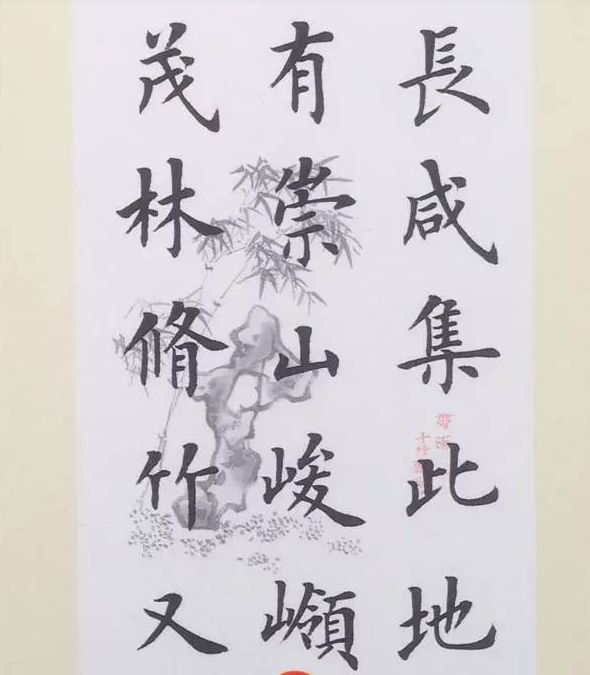 長咸集此地
有崇山峻嶺
茂林脩竹又